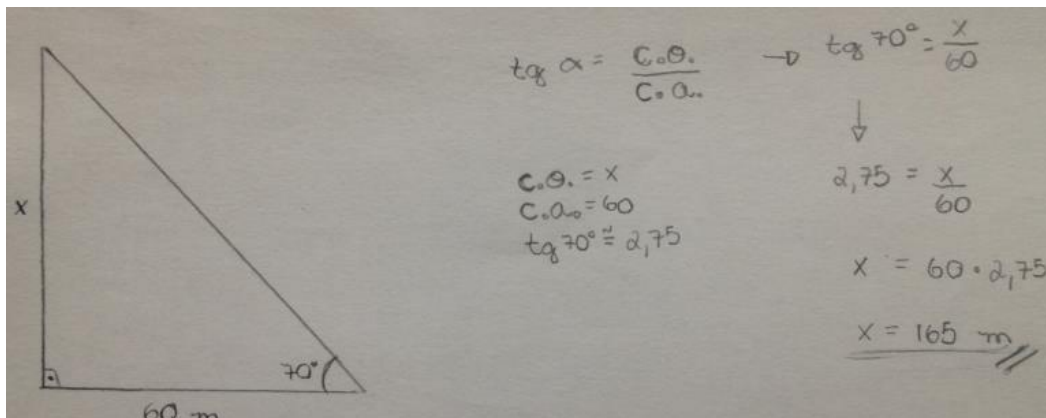 x
70°
60 m
tg α = c.o. / c.a. → tg 70° = x / 60
↓
c.o. = x
c.a. = 60
tg 70° ≅ 2,75
2,75 = x / 60
x = 60 . 2,75
x = 165 m //